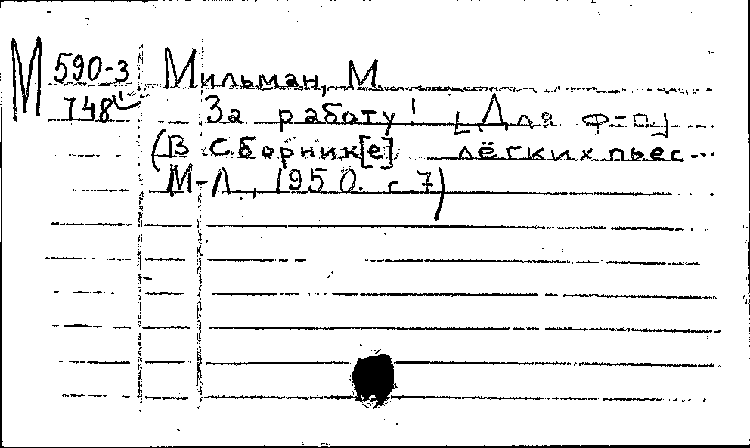 М 590-3 Мильман, М
748 За работу! [Для ф-п.]
(В Сборник[е] лёгких пьес...
М-Л., 1950. с 7)